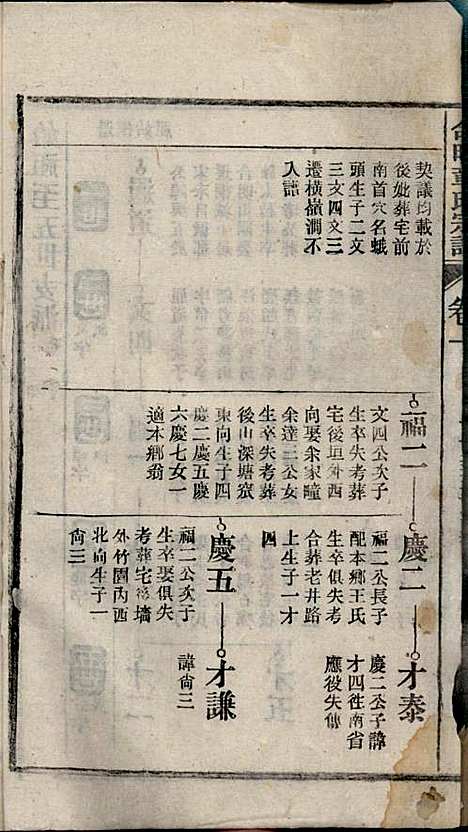 契議均載於
後妣葬宅前
南首穴名蛾
頭生子二文
三文四文三
遷橫嶺澗不
入譜
福二
文四公次子
生卒失考葬
宅後垣外西
向娶余家疃
余達三公女
生卒失考葬
後山深塘窊
東向生子四
慶二慶五慶
六慶七女一
適本鄉翁
慶二
福二公長子
配本鄉王氏
生卒俱失考
合葬老井路
上生子一才
四
才泰
慶二公子諱
才四徃南省
應役失傳
慶五
福二公次子
生卒娶俱失
考葬宅後墻
外竹園內西
北向生子一
尙三
才謙
諱尙三
董氏宗譜
卷一